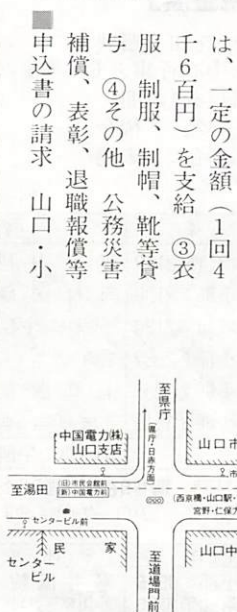 は、一定の金額（1回4
千6百円）を支給　③衣
服　制服、制帽、靴等貸
与　④その他　公務災害
補償、表彰、退職報償等
■申込書の請求　山口・小
至県庁
(県庁・日赤方面)
中国電力㈱
山口支店
山口市
市
至湯田
(旧)市民会館前
(新)中国電力前
(西京橋・山口駅・
宮野・仁保方
センタービル前
民家
センター
ビル
至道場門前
山口中